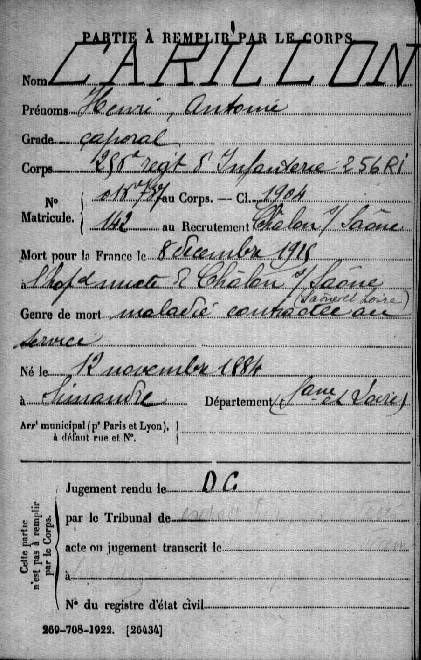 PARTIE À REMPLIR PAR LE CORPS
Nom CARILLON
Prénoms Henri, Antoine
Grade caporal
Corps régt d'Infanterie 256 RI
N° Matricule. au Corps. — Cl. 1904
142 au Recrutement Châlon s/ Saône
Mort pour la France le 8 décembre 1915
à l'hop^al mixte de Châlon s/ Saône
(Saône et Loire)
Genre de mort maladie contractée au
service
Né le 12 novembre 1884
à Simandre Département (Saône et Loire)
Arr^t municipal (p^r Paris et Lyon),
à défaut rue et N°.
Cette partie n'est pas à remplir par le Corps.
Jugement rendu le DC
par le Tribunal de
acte ou jugement transcrit le
à
N° du registre d'état civil
269-708-1922. [26434]